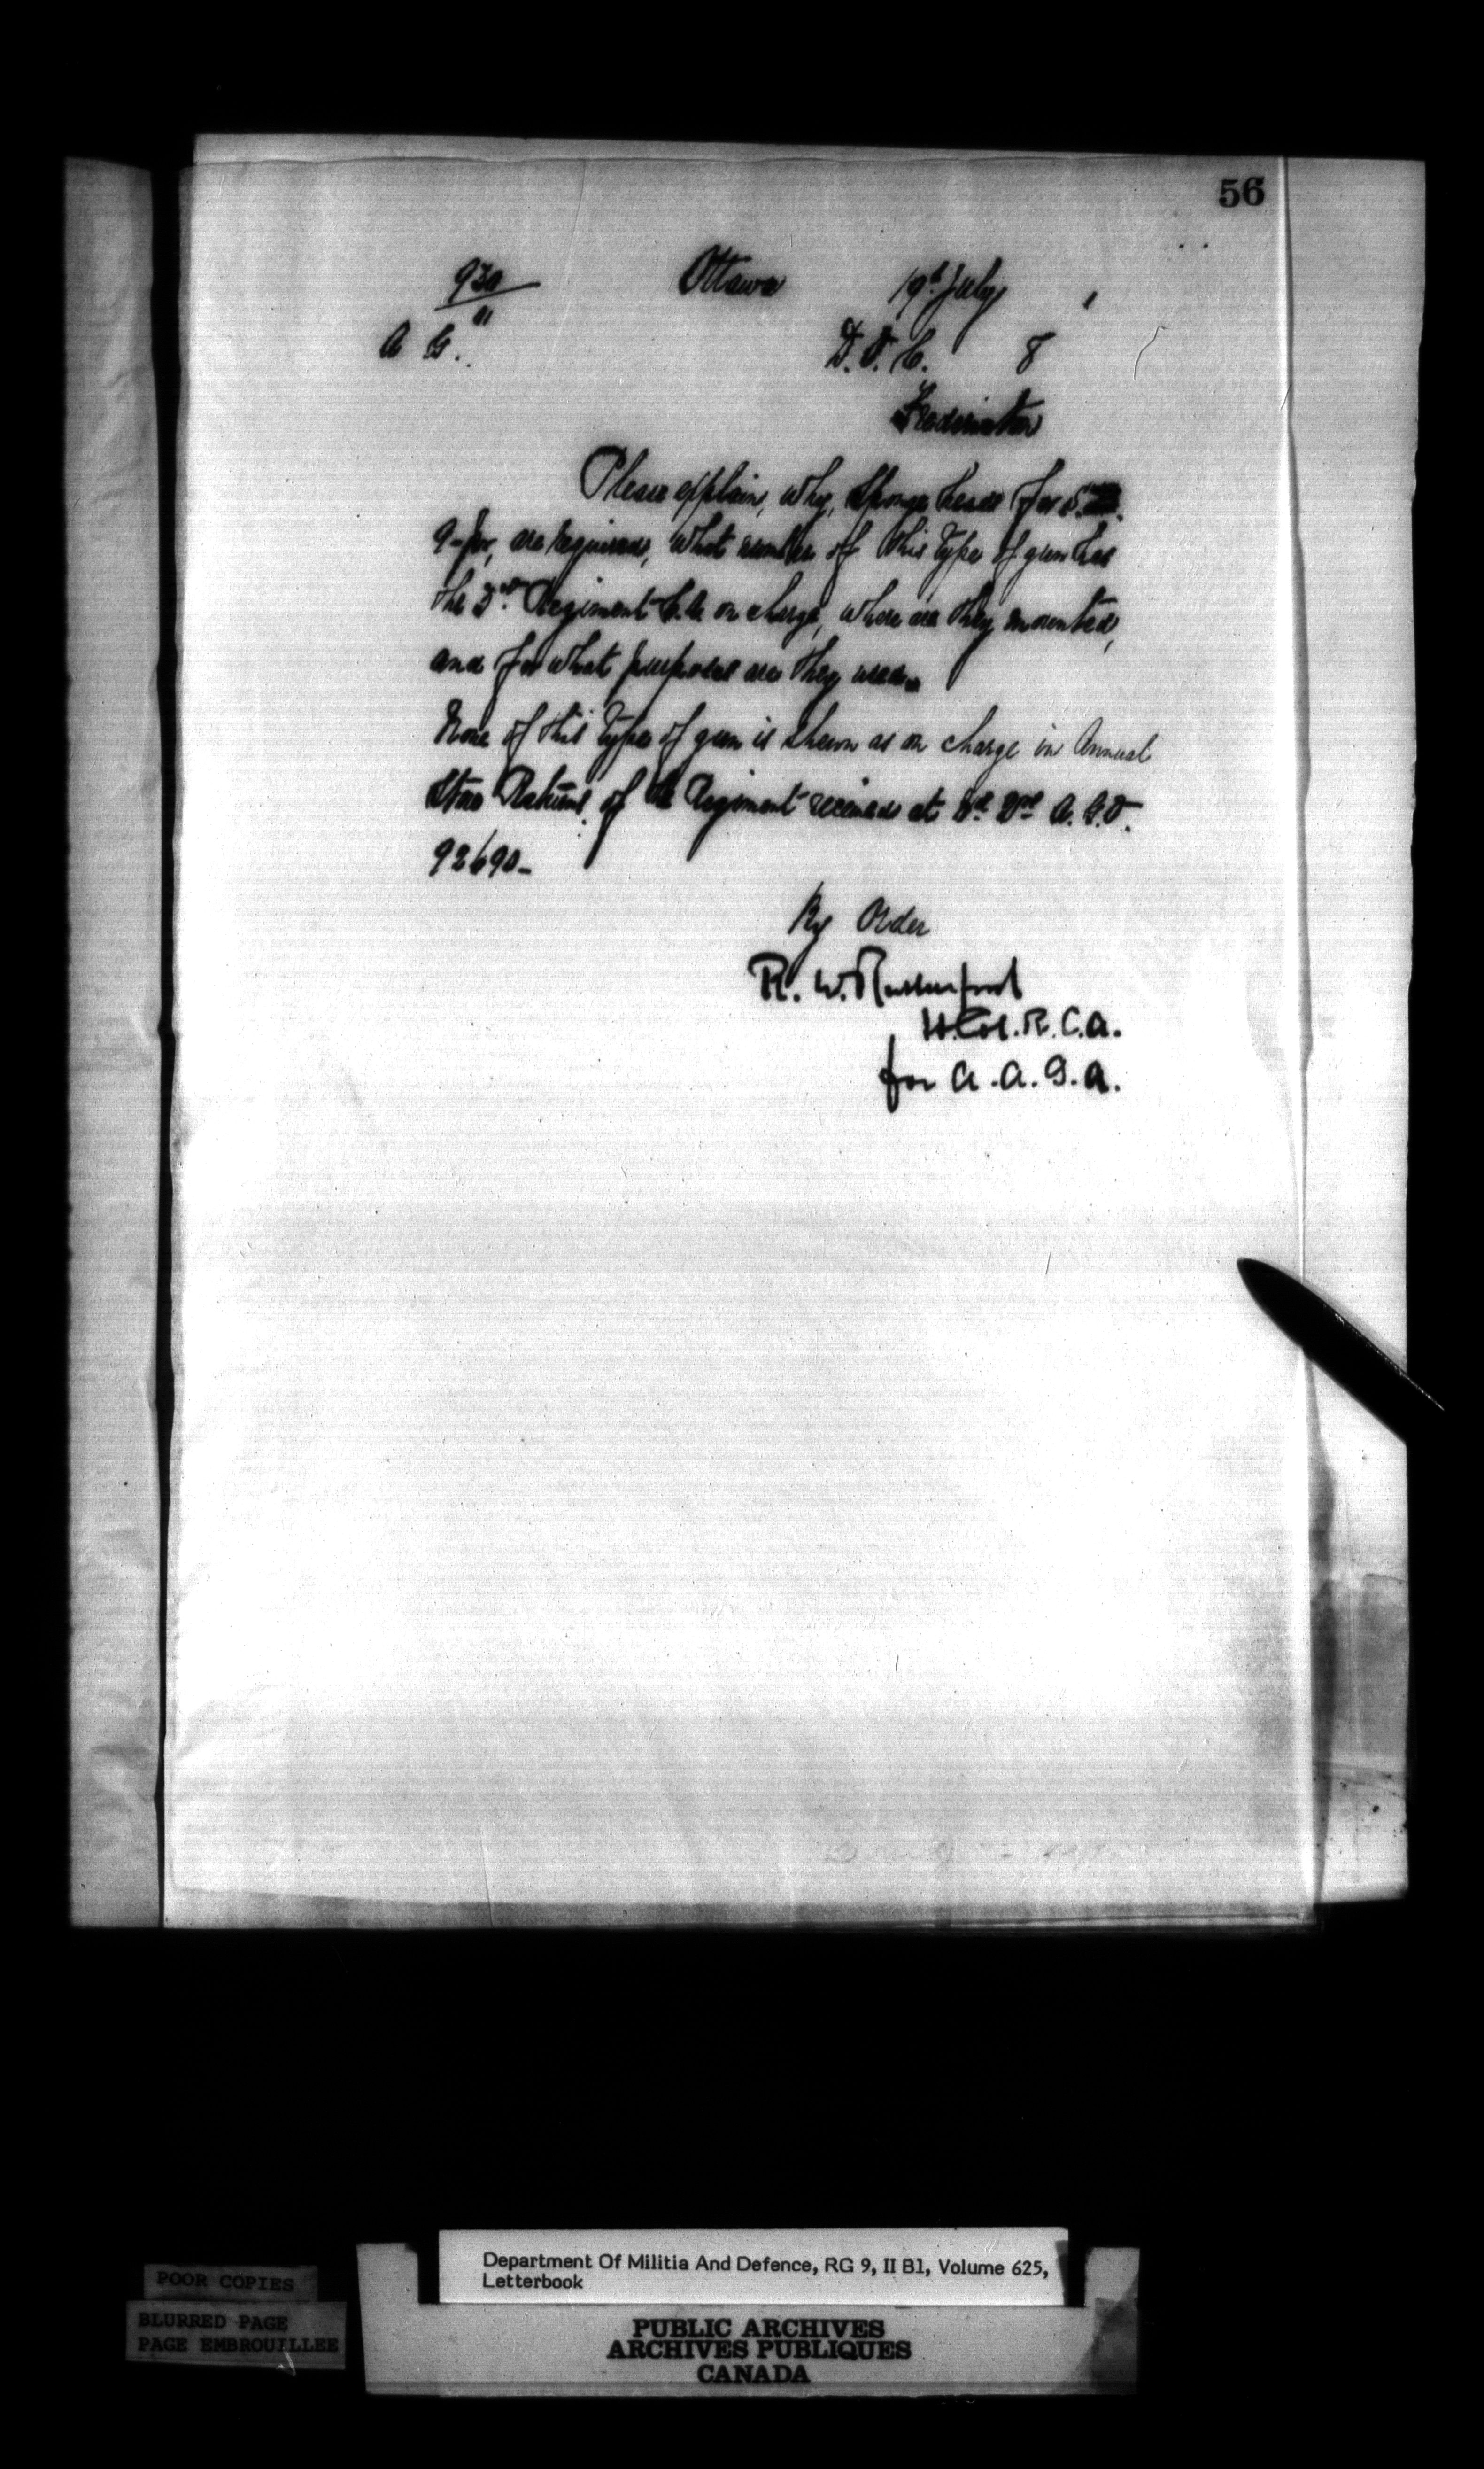 56
930
Ottawa 19th July 1
A G. 01
D. O. C. 8
Fredericton
Please explain, why, sponge heads for S.B.
9-pr, are required, what number of this type of gun has
the 3rd Regiment C.A. on charge, where are they mounted,
and for what purposes are they used.
None of this type of gun is shewn as on charge in Annual
Store Returns of the Regiment received at Hd. Qrs. A.
92690-
By Order
R. W. Rutherford
Lt. Col. R.C.A.
for A.A.G.A.
Department Of Militia And Defence, RG 9, II B1, Volume 625,
Letterbook
POOR COPIES
BLURRED PAGE
PAGE EMBROUILLEE
PUBLIC ARCHIVES
ARCHIVES PUBLIQUES
CANADA